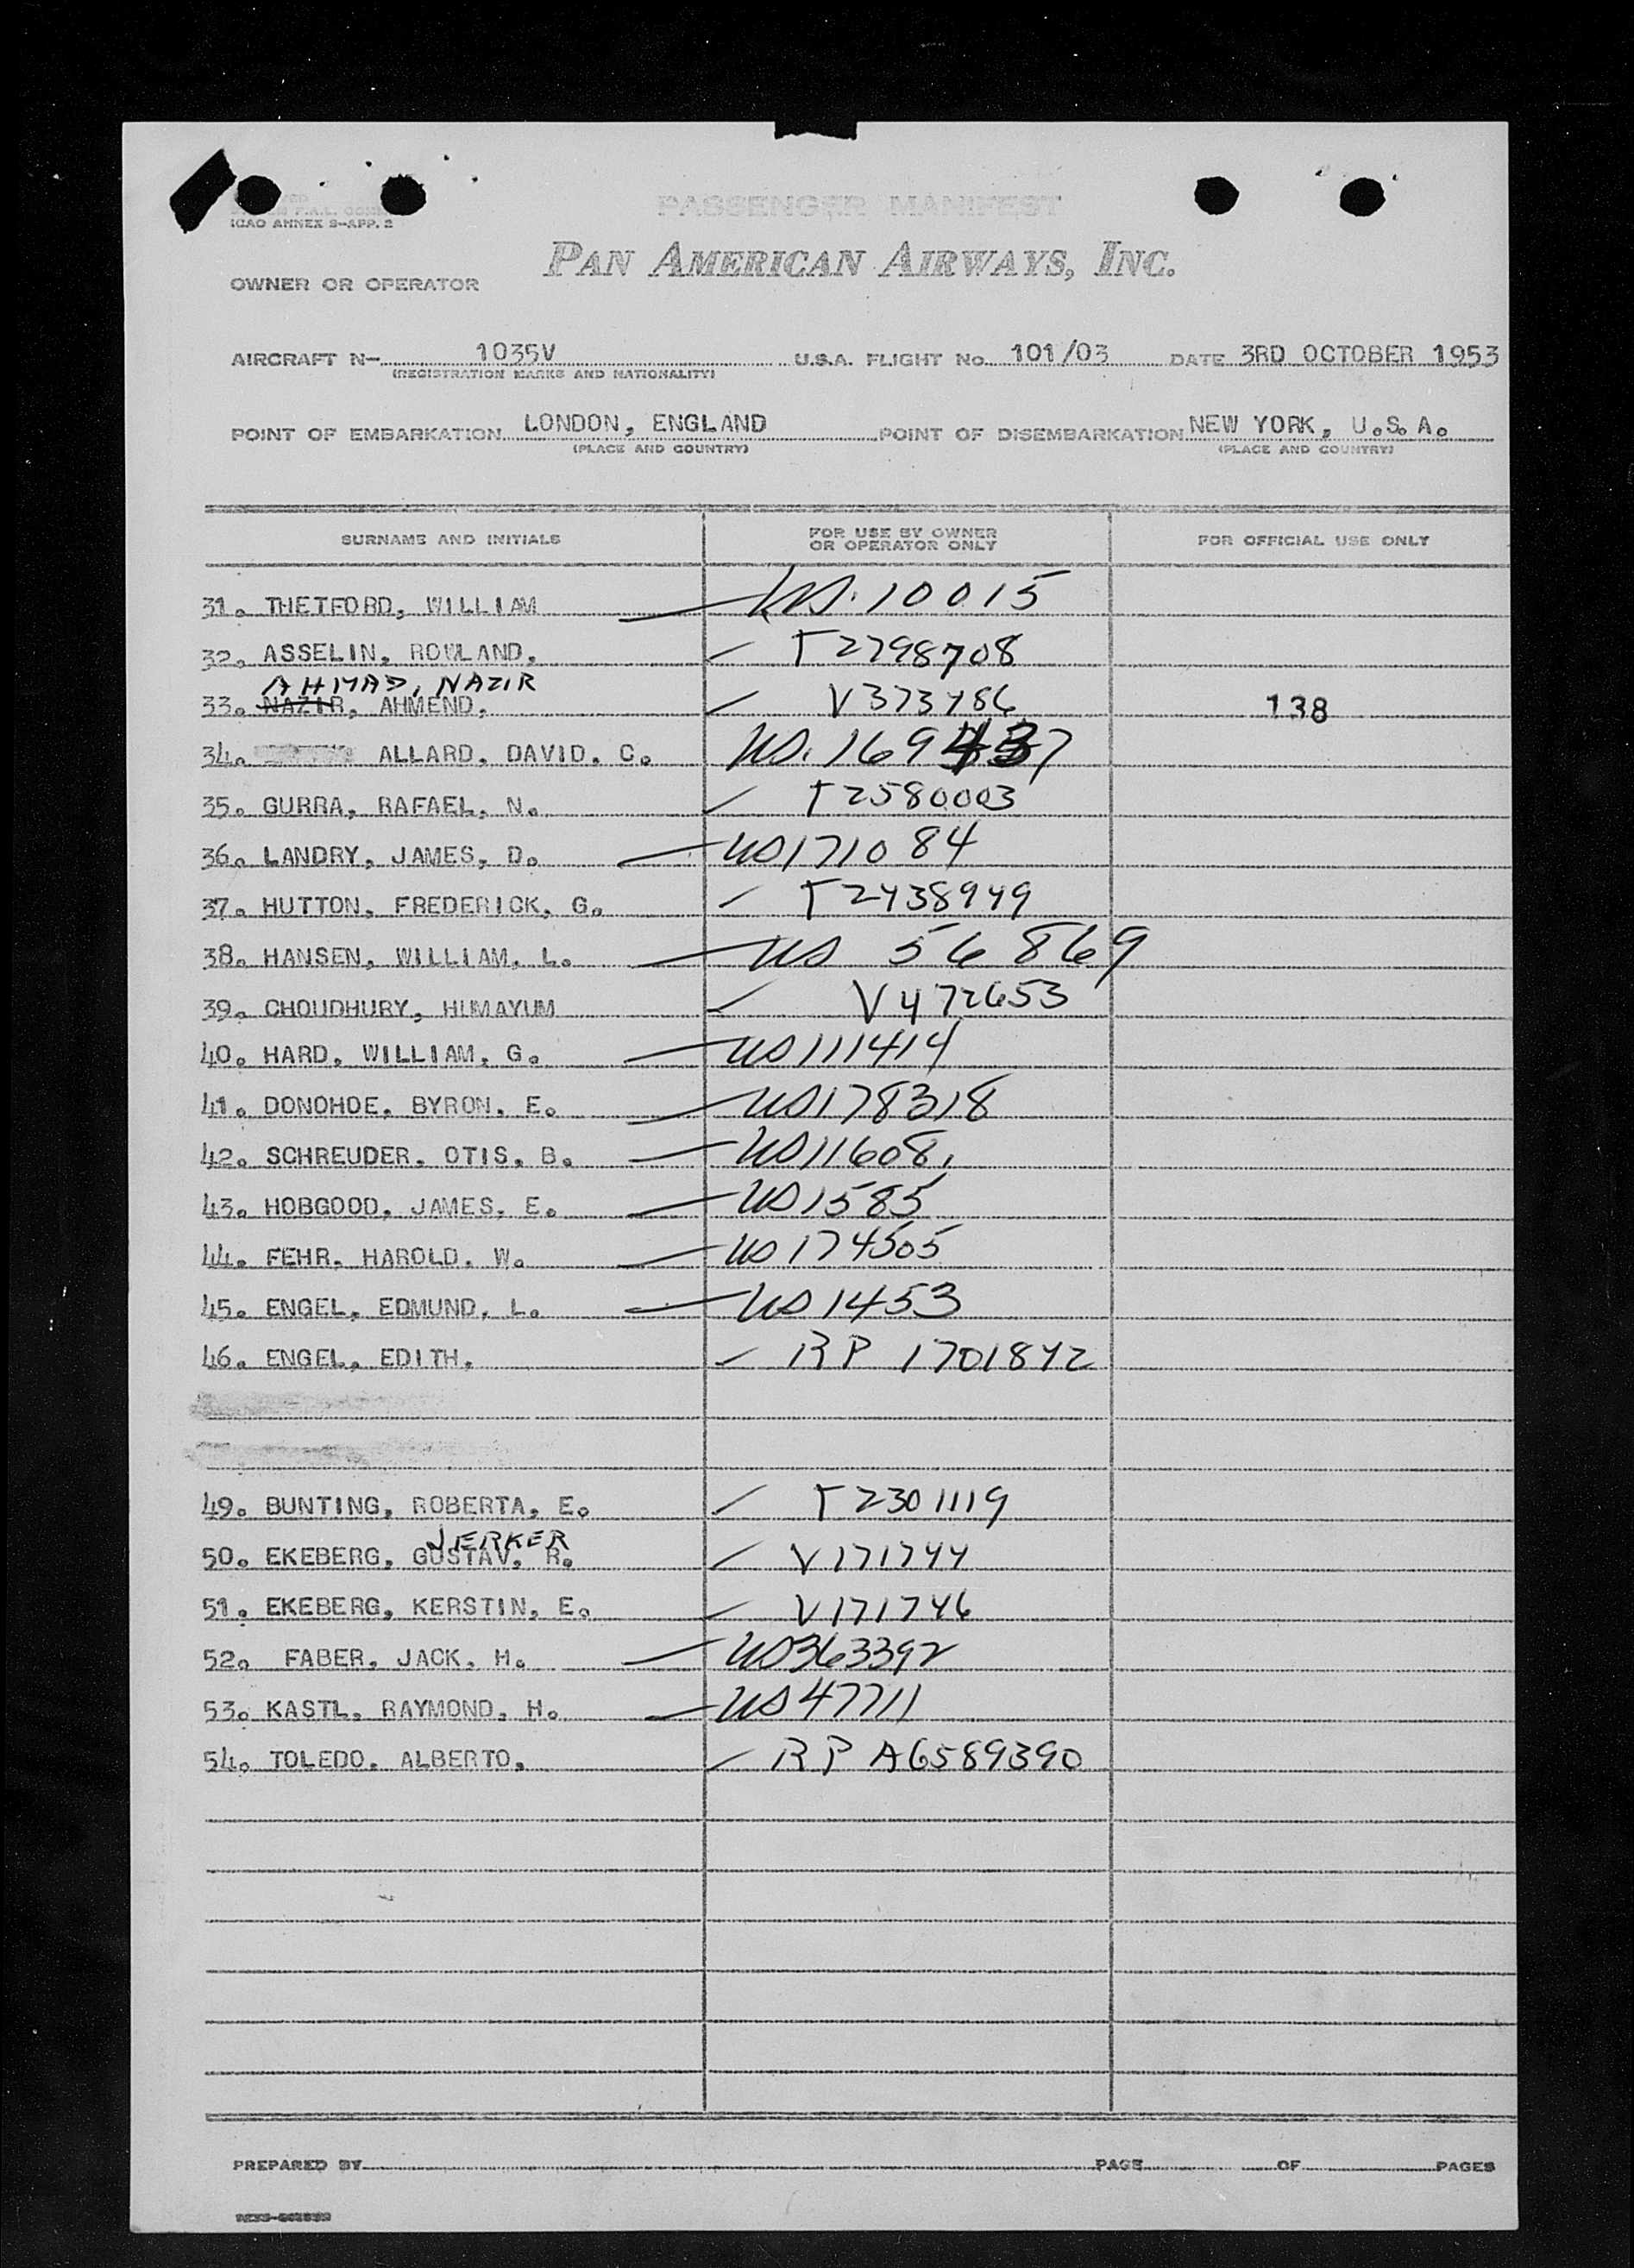 ICAO ANNEX 9-APP. 2
PASSENGER MANIFEST
PAN AMERICAN AIRWAYS, INC.
OWNER OR OPERATOR
AIRCRAFT N- 1035V U.S.A. FLIGHT No. 101/03 DATE 3RD OCTOBER 1953
(REGISTRATION MARKS AND NATIONALITY)
POINT OF EMBARKATION LONDON, ENGLAND POINT OF DISEMBARKATION NEW YORK, U.S.A.
(PLACE AND COUNTRY) (PLACE AND COUNTRY)
SURNAME AND INITIALS FOR USE BY OWNER OR OPERATOR ONLY FOR OFFICIAL USE ONLY
31. THETFORD, WILLIAM US. 10015
32. ASSELIN, ROWLAND, T2798708
AHMAD, NAZIR
33. NAZIR, AHMEND, V373786 138
34. ALLARD, DAVID, C. US. 169437
35. GURRA, RAFAEL, N. T2580003
36. LANDRY, JAMES, D. US171084
37. HUTTON, FREDERICK, G. T2438949
38. HANSEN, WILLIAM, L. US 56869
39. CHOUDHURY, HUMAYUM V472653
40. HARD, WILLIAM, G. US111414
41. DONOHOE, BYRON, E. US178318
42. SCHREUDER, OTIS, B. US116081
43. HOBGOOD, JAMES, E. US1585
44. FEHR, HAROLD, W. US174505
45. ENGEL, EDMUND, L. US1453
46. ENGEL, EDITH, RP 1701842
49. BUNTING, ROBERTA, E. T2301119
JERKER
50. EKEBERG, GUSTAV, R. V171744
51. EKEBERG, KERSTIN, E. V171746
52. FABER, JACK, M. US363392
53. KASTL, RAYMOND, H. US47711
54. TOLEDO, ALBERTO, RP A6589390
PREPARED BY PAGE OF PAGES